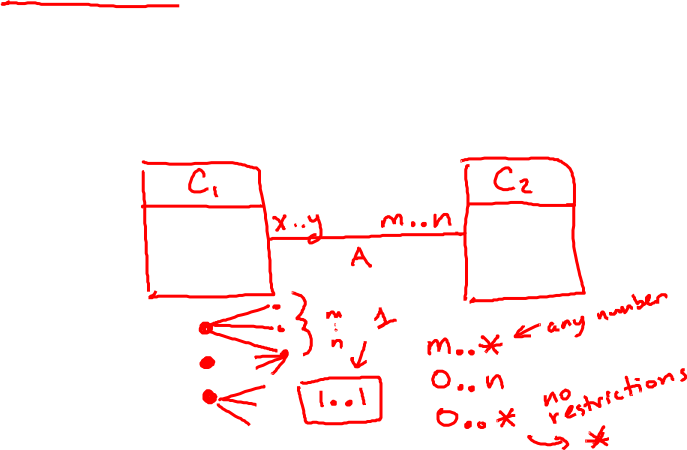 C1
C2
x..y
m..n
A
m
:
n
1
1..1
m..* ← any number
0..n
0..* no restrictions
→ *